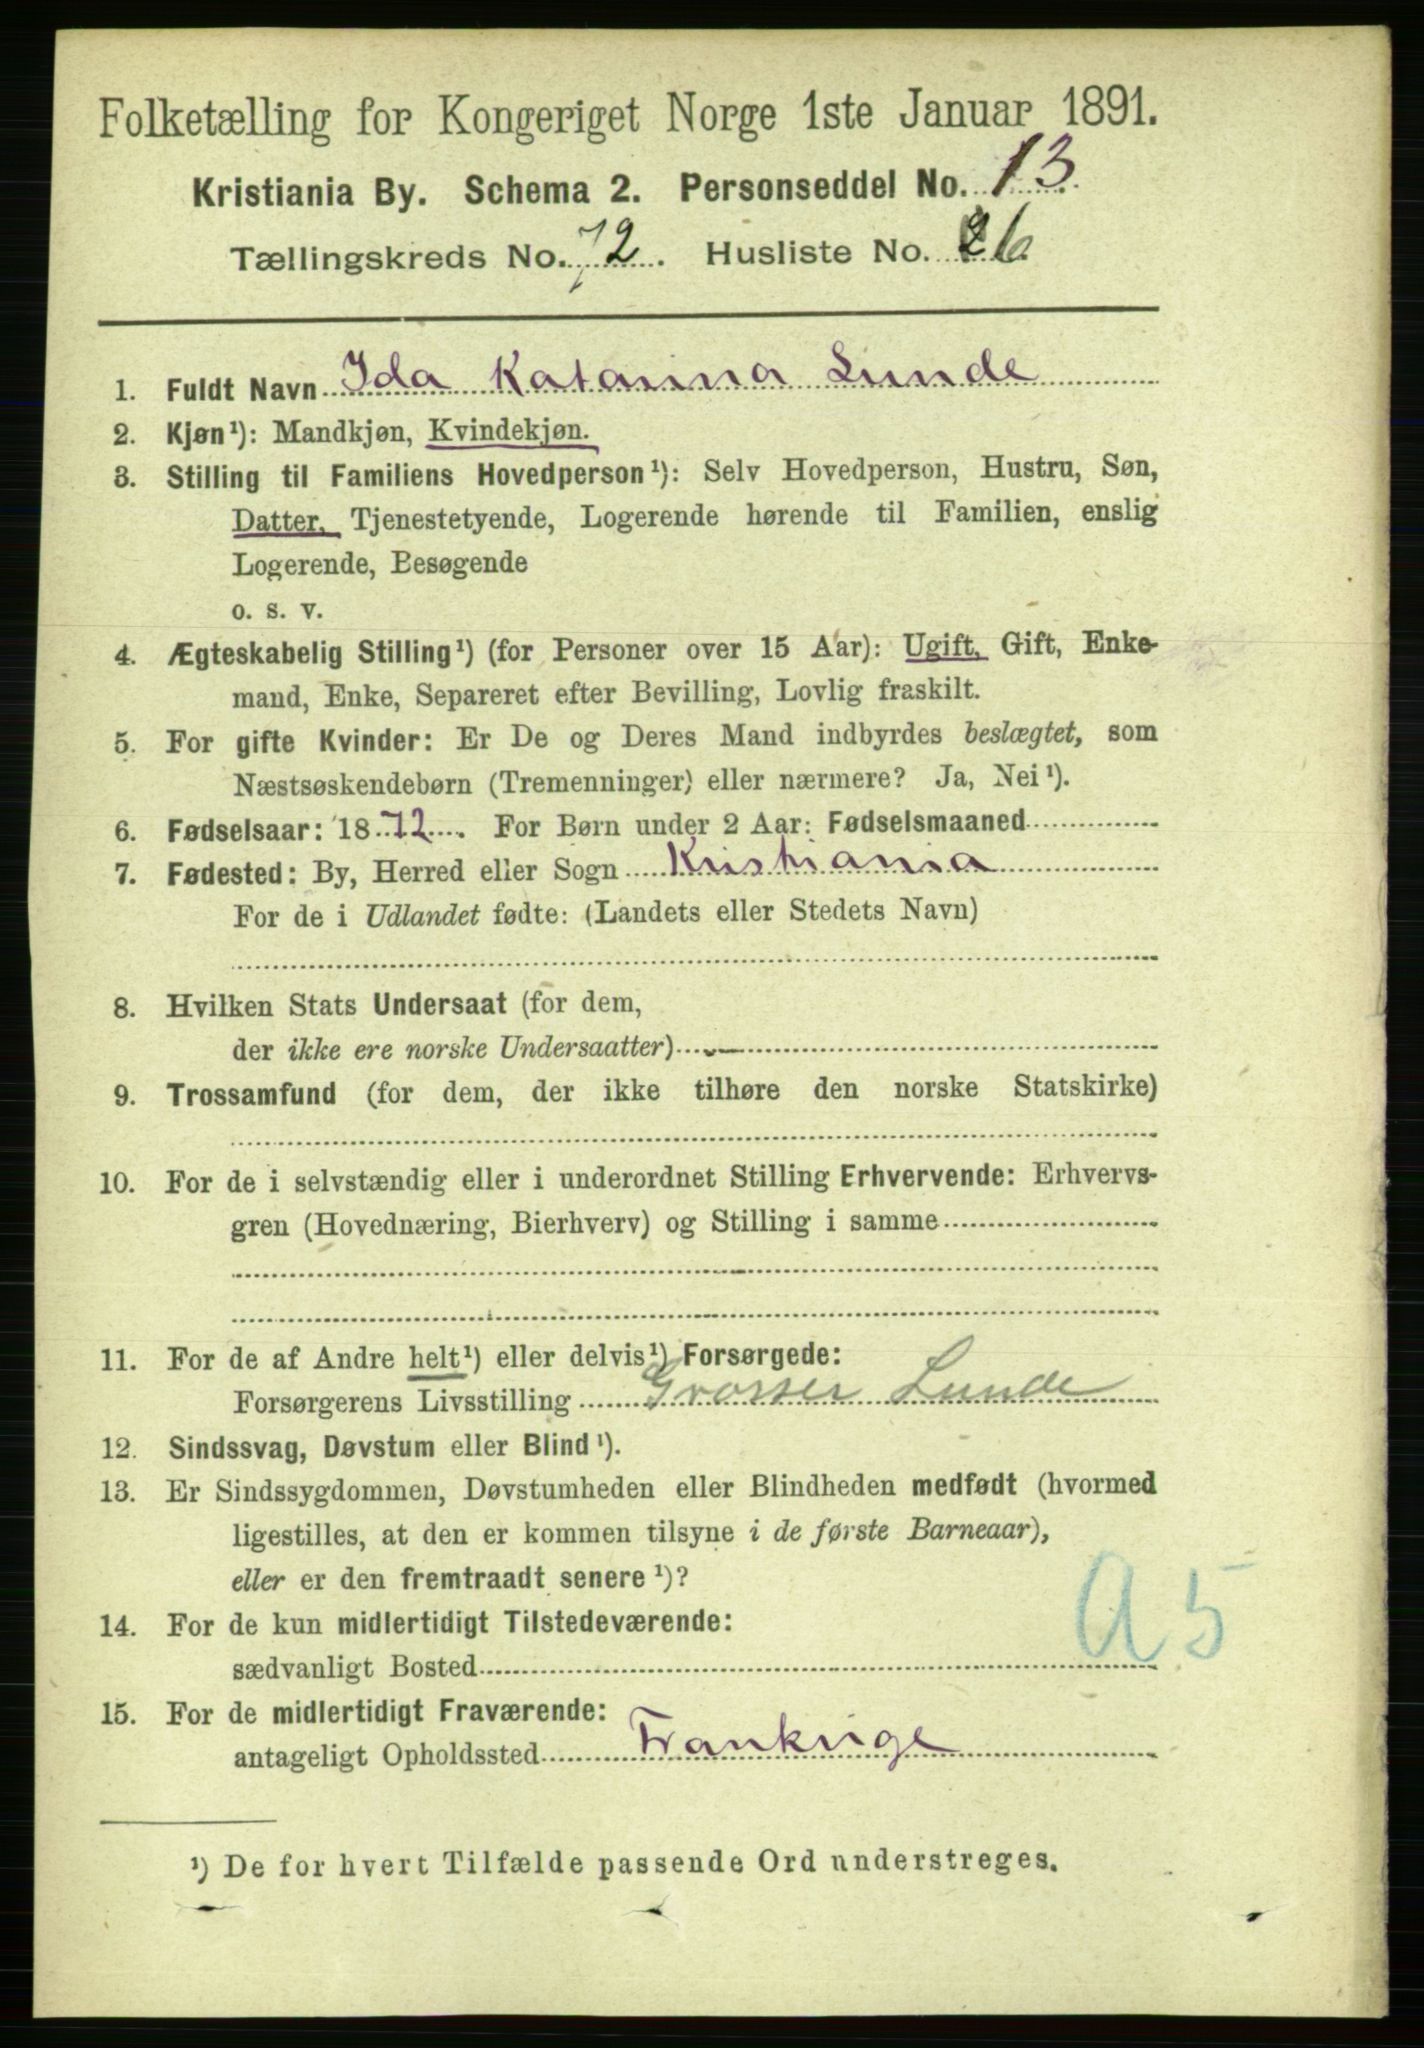 Folketælling for Kongeriget Norge 1ste Januar 1891.
Kristiania By. Schema 2. Personseddel No. 13.
Tællingskreds No. 72. Husliste No. 26
1. Fuldt Navn Ida Katarina Lunde
2. Kjøn¹): Mandkjøn, Kvindekjøn.
3. Stilling til Familiens Hovedperson¹): Selv Hovedperson, Hustru, Søn,
Datter, Tjenestetyende, Logerende hørende til Familien, enslig
Logerende, Besøgende
o. s. v.
4. Ægteskabelig Stilling¹) (for Personer over 15 Aar): Ugift, Gift, Enke-
mand, Enke, Separeret efter Bevilling, Lovlig fraskilt.
5. For gifte Kvinder: Er De og Deres Mand indbyrdes beslægtet, som
Næstsøskendebørn (Tremenninger) eller nærmere? Ja, Nei¹).
6. Fødselsaar: 1872. For Børn under 2 Aar: Fødselsmaaned
7. Fødested: By, Herred eller Sogn Kristiania
For de i Udlandet fødte: (Landets eller Stedets Navn)
8. Hvilken Stats Undersaat (for dem,
der ikke ere norske Undersaatter)
9. Trossamfund (for dem, der ikke tilhøre den norske Statskirke)
10. For de i selvstændig eller i underordnet Stilling Erhvervende: Erhvervs-
gren (Hovednæring, Bierhverv) og Stilling i samme
11. For de af Andre helt¹) eller delvis¹) Forsørgede:
Forsørgerens Livsstilling Grosser Lunde
12. Sindssvag, Døvstum eller Blind¹).
13. Er Sindssygdommen, Døvstumheden eller Blindheden medfødt (hvormed
ligestilles, at den er kommen tilsyne i de første Barneaar),
eller er den fremtraadt senere¹)?
A 5
14. For de kun midlertidigt Tilstedeværende:
sædvanligt Bosted
15. For de midlertidigt Fraværende:
antageligt Opholdssted Frankrige
¹) De for hvert Tilfælde passende Ord understreges.